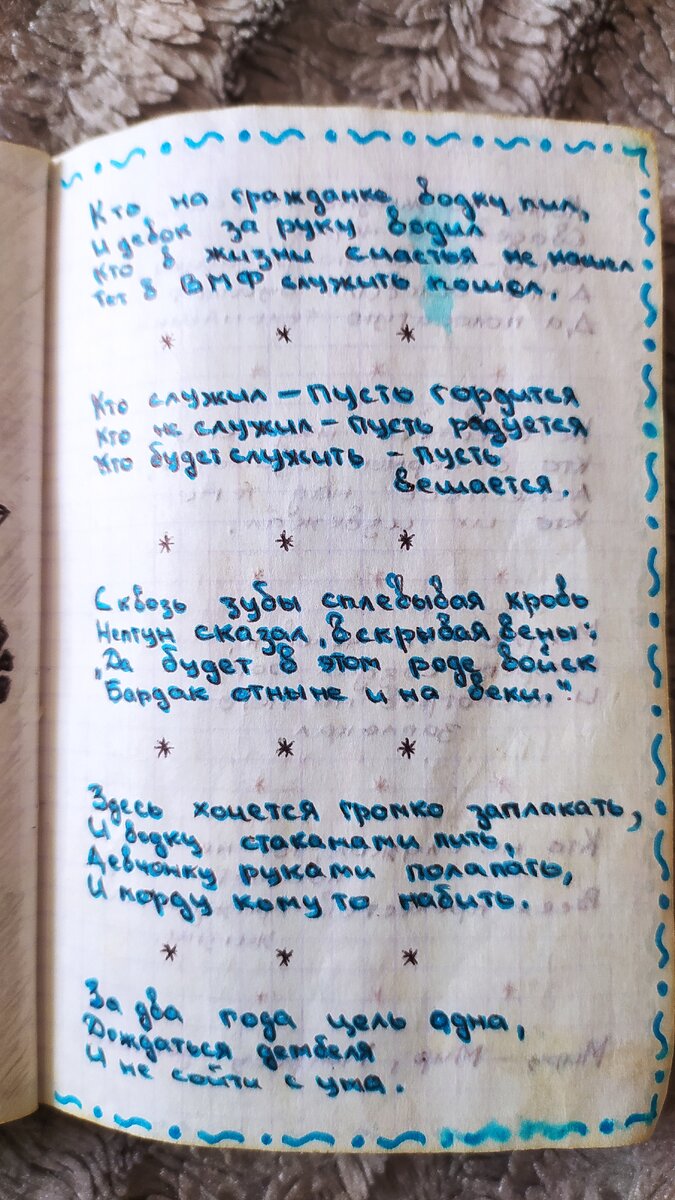 Кто на гражданке водку пил,
И девок за руку водил
Кто в жизни счастья не нашел
Тот в ВМФ служить пошел.
* * *
Кто служил – пусть гордится
Кто не служил – пусть радуется
Кто будет служить – пусть
вешается.
* * *
Сквозь зубы сплевывая кровь
Нептун сказал, вскрывая вены:
„Да будет в этом роде войск
Бардак отныне и на веки."
* * *
Здесь хочется громко заплакать,
И водку стаканами пить,
Девчонку руками полапать,
И морду кому то набить.
* * *
За два года цель одна,
Дождаться дембеля
И не сойти с ума.